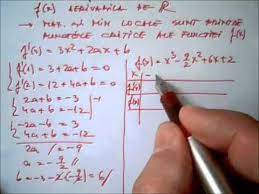 f'(x) DERIVABILA PE R
→ MAX. ȘI MIN LOCALE SUNT NUMITE
PUNCTELE CRITICE ALE FUNCȚIEI f(x)
f'(x) = 3x² + 2ax + b
{ f'(1) = 3 + 2a + b = 0
{ f'(2) = 12 + 4a + b = 0
{ 2a + b = -3
{ 4a + b = -12
{ -2a - b = 3
{ 4a + b = -12
2a / = -9
a = -9/2
b = -3 - 2(-9/2) = 6
f(x) = x³ - 9/2 x² + 6x + 2
x | -
f'(x)
f(x)